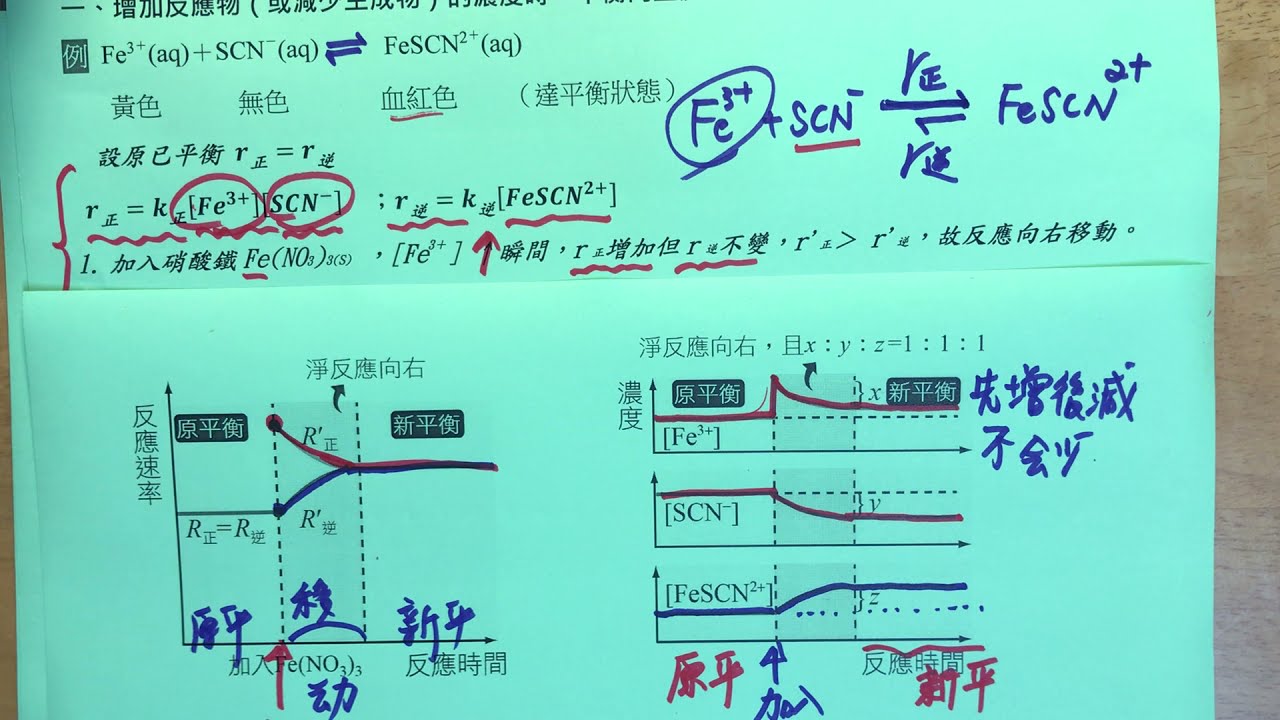 一、增加反應物（或減少生成物）的濃度時，平衡向
例 Fe³⁺(aq)+SCN⁻(aq) ⇌ FeSCN²⁺(aq)
黃色 無色 血紅色 （達平衡狀態）
Fe³⁺+SCN⁻ r正 ⇌ r逆 FeSCN²⁺
設原已平衡 r正=r逆
r正=k正[Fe³⁺][SCN⁻] ；r逆=k逆[FeSCN²⁺]
1. 加入硝酸鐵 Fe(NO₃)₃(s) ，[Fe³⁺] ↑瞬間，r正增加但r逆不變，r'正> r'逆，故反應向右移動。
淨反應向右
反應速率
原平衡
新平衡
R'正
R正=R逆
R'逆
原平
移
动
新平
加入Fe(NO₃)₃
反應時間
淨反應向右，且x：y：z=1：1：1
濃度
原平衡
x
新平衡
先增後減
不会少
[Fe³⁺]
[SCN⁻]
y
[FeSCN²⁺]
z
反應時間
原平
加入
新平